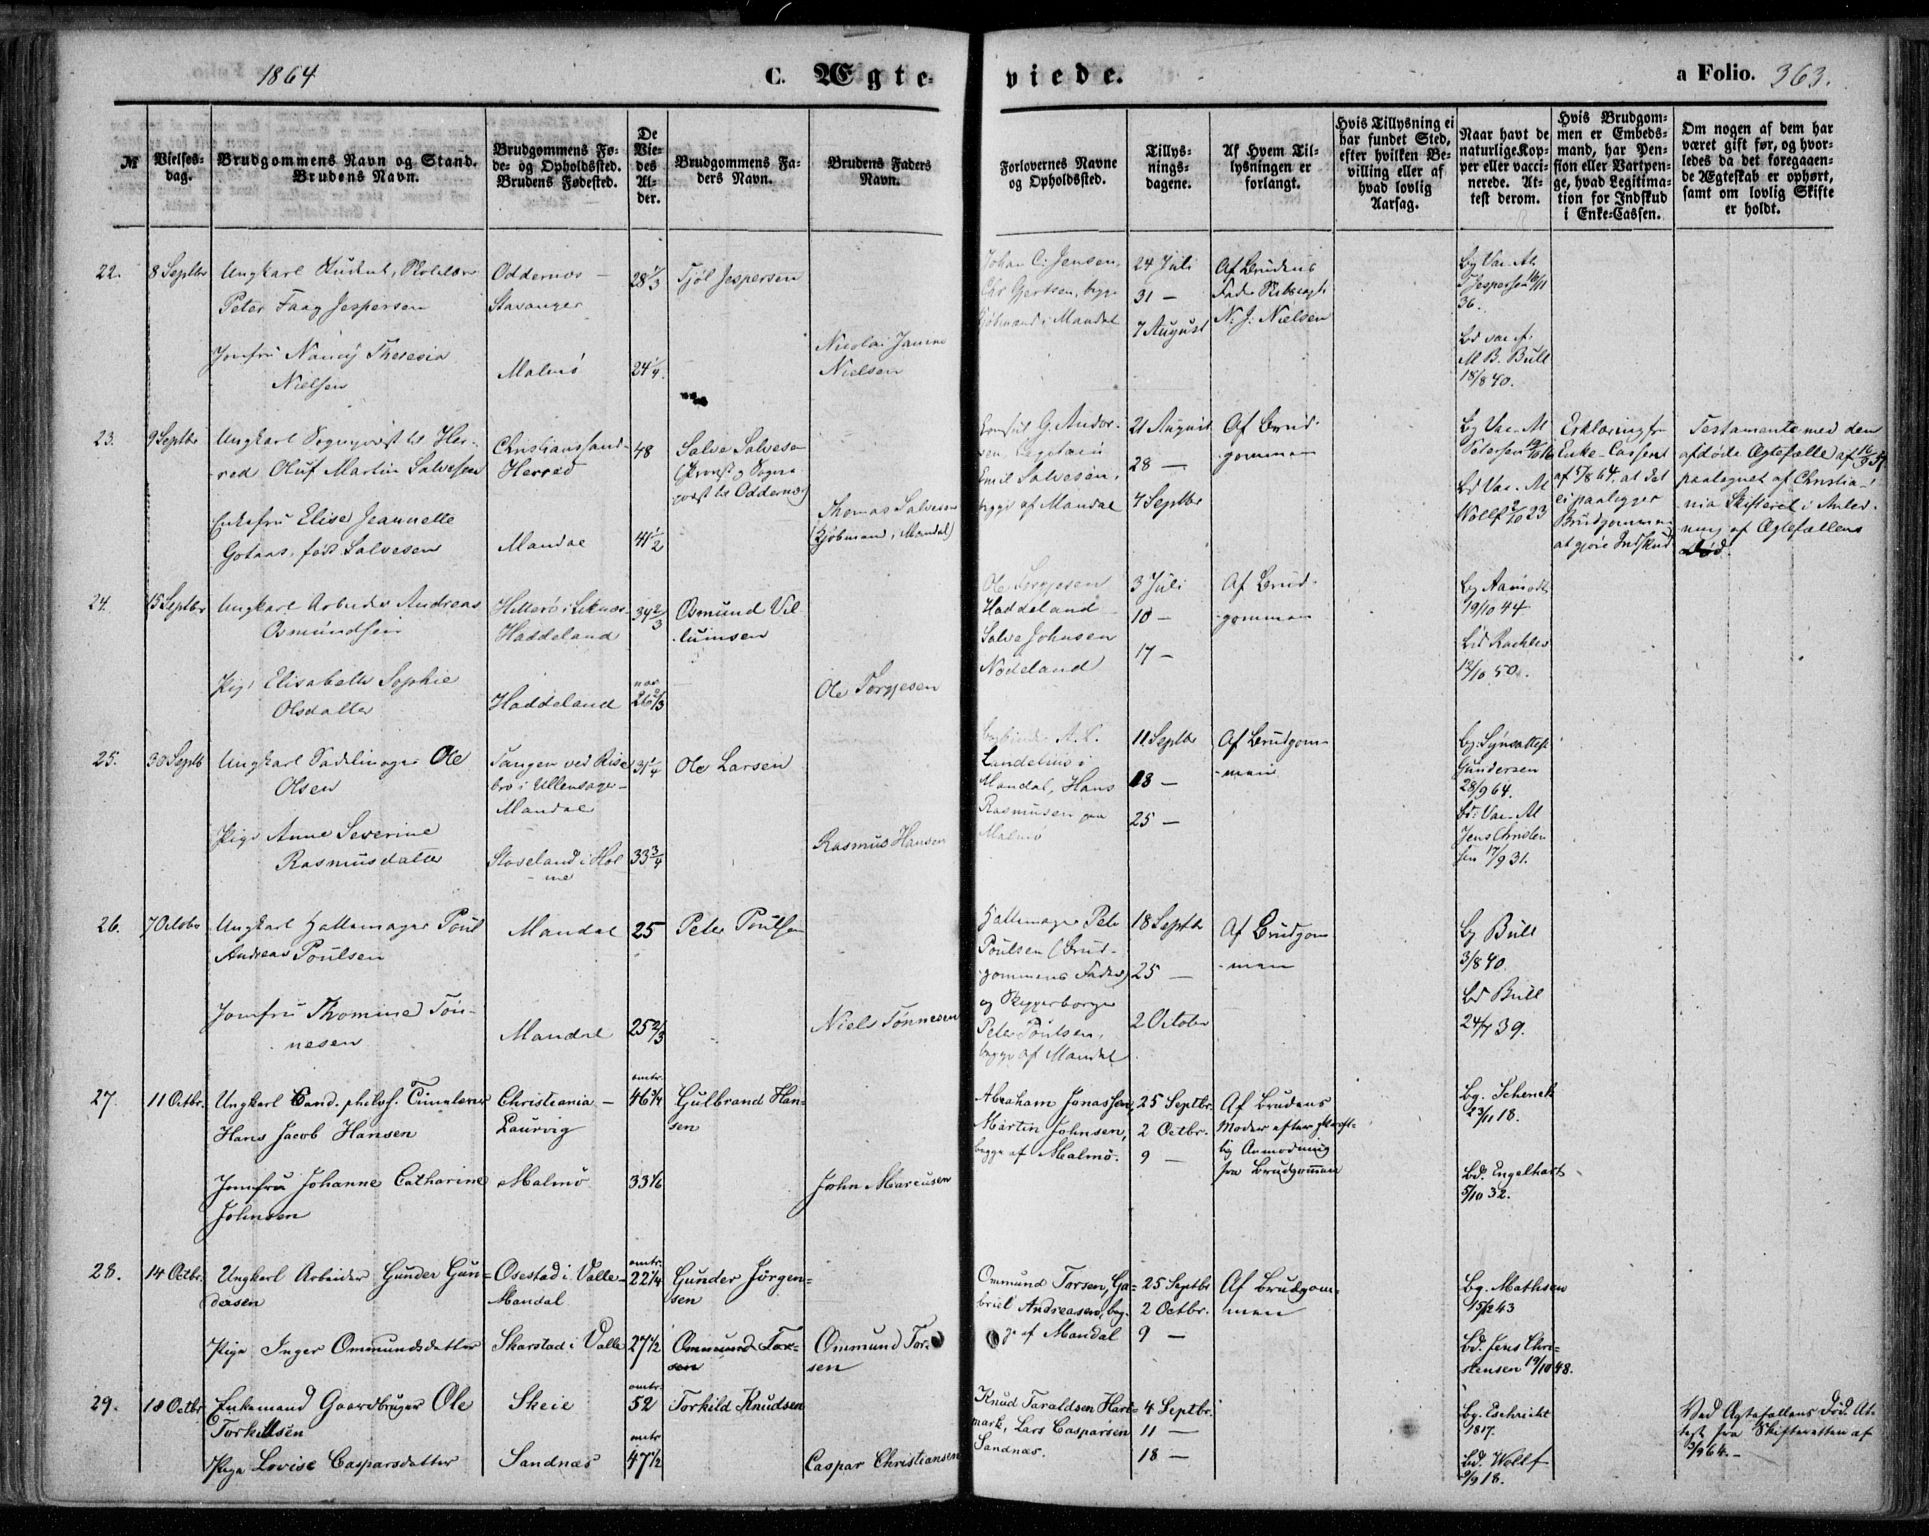 1864
C. Ægte-
viede.
a Folio. 363.
№
Vielses-
dag.
Brudgommens Navn og Stand.
Brudens Navn.
Brudgommens Fø-
de- og Opholdssted.
Brudens Fødested.
De
Vie-
des
Al-
der.
Brudgommens Fa-
ders Navn.
Brudens Faders
Navn.
Forlovernes Navne
og Opholdssted.
Tillys-
nings-
dagene.
Af Hvem Til-
lysningen er
forlangt.
Hvis Tillysning ei
har fundet Sted,
efter hvilken Be-
villing eller af
hvad lovlig
Aarsag.
Naar havt de
naturlige Kop-
per eller vacci-
nerede. At-
test derom.
Hvis Brudgom-
men er Embeds-
mand, har Pen-
sion eller Vartpen-
ge, hvad Legitima-
tion for Indskud
i Enke-Cassen.
Om nogen af dem har
været gift før, og hvor-
ledes da det foregaaen-
de Ægteskab er ophørt,
samt om lovlig Skifte
er holdt.
22.
8 Septbr
Ungkarl Student,
Peter Faag Jespersen
Oddernes –
Stavanger
28 1/3
Tjøl Jespersen
Johan C. Jensen,
Chr Gjertsen, begge
Kjøbmænd i Mandal
24 Juli
31 —
7 August
Af Brudens
Fader
N. J. Nielsen
bg Vac. At.
Jespersen 16/11
36.
Jomfru Nancy Theresia
Nielsen
Malmø
24 1/4.
Nicolai
Nielsen
bd vac. A.
M B. Bull
18/8 40.
23.
9 Septbr
Ungkarl Sogneprest til Her-
red Oluf Martin Salvesen
Christianssand –
Herred
48
Salve Salvesen
(Provst og Sogne
prest til Oddernes)
Consul G. Andor-
sen,
Emil Salvesen,
begge af Mandal
21 August
28 —
4 Septbr
Af Brud-
gommen
bg Vac. At
Erklæring fr
Enke-Cassen
af 5/8 64, at det
ei paalegger
Brudgommen
at gjøre Indskud
Testamente med den
afdøde Ægtefælle af
paategnet af Christia-
nia Skifteret i Anled-
ning af Ægtefællens
Død.
Enkefru Elise Jeannette
Gotaas, født Salvesen
Mandal
41 1/2
Thomas Salvesen
(Kjøbmand i Mandal)
bd Vac. At
Wolff 2/10 23
24.
15 Septbr
Ungkarl Arbeider Andreas
Osmundsen
Hitterø i
Haddeland
34 2/3
Osmund Vil-
lumsen
Ole Torgjesen
Haddeland
Salve Johnsen
Nodeland
3 Juli
10 —
17 —
Af Brud-
gommen
bg
19/10 44
Pige Elisabeth Sophie
Olsdatter
Haddeland
26 1/3
Ole Torgjesen
bd
12/10 50.
25.
30 Septb
Ungkarl Sadelmager Ole
Olsen
Tangen ved Rise
bro i Ullensager –
Mandal
31 1/4
Ole Larsen
A. C.
i
Mandal, Hans
Rasmusen paa
Malmø
11 Septbr
18 —
25 —
Af Brudgom-
men
bg: Synsattest
Gundersen
28/9 64.
Pige Anne Severine
Rasmusdatter
Stoveland i Hol-
me
33 3/4
Rasmus Hansen
bd: Vac. At
Jens Christen
sen 17/9 31.
26.
7 October
Ungkarl Hattemager Poul
Andreas Poulsen
Mandal
25
Peter Poulsen
Hattemager Peter
Poulsen (Brud-
gommens Fader)
og Skipperborger
Peter Poulsen,
begge af Mandal
18 Septb
25 —
2 October
Af Brudgom
men
bg Bull
3/8 40.
Jomfru Thomine Tøn-
nesen
Mandal
25 2/3
Niels Tønnesen
bd Bull
24/7 39.
27
11 Octbr.
Ungkarl Cand. philos. Timelærer
Hans Jacob Hansen
Christiania –
Laurvig
omtr.
46 3/4
Gulbrand Han-
sen
Abraham Jonassen,
Martin Johnsen,
begge af Malmø.
25 Septbr.
2 Octbr.
9 —
Af Brudens
Moder efter skrift-
lig Anmodning
fra Brudgommen
bg. Schenck
23/11 18.
Jomfru Johanne Catharine
Johnsen
Malmø
33 1/6
John Marcusen
bd. Engelhart
5/10 32.
28.
14 Octbr.
Ungkarl Arbeider Gunder Gun-
dersen
Osestad i Valle –
Mandal
omtr.
22 1/4
Gunder Jørgen-
sen
Ommund Torsen, Ga-
briel Andreasen, beg-
ge af Mandal
25 Septbr
2 Octbr.
9 —
Af Brudgom-
men
bg. Mathsen
15/12 43
Pige Inger Ommundsdatter
Skarstad i Valle
27 1/2
Ommund Tor-
sen
Ommund Tor-
sen
bd. Jens Chri-
stensen 19/10 48.
29.
18 Octbr
Enkemand Gaardbruger Ole
Torkildsen
Skeie
omtr.
52
Torkild Knudsen
Knud Taraldsen Hart-
mark, Lars Casparsen
Sandnæs.
4 Septbr.
11 —
18 —
bg. Eschricht
1817.
Ved Ægtefællens Død. At-
test fra Skifteretten af
3/9 64.—
Pige Lovise Caspersdatter
Sandnæs
omtr
47 1/2
Caspar Christiansen
bd. Wolff
9/9 18.